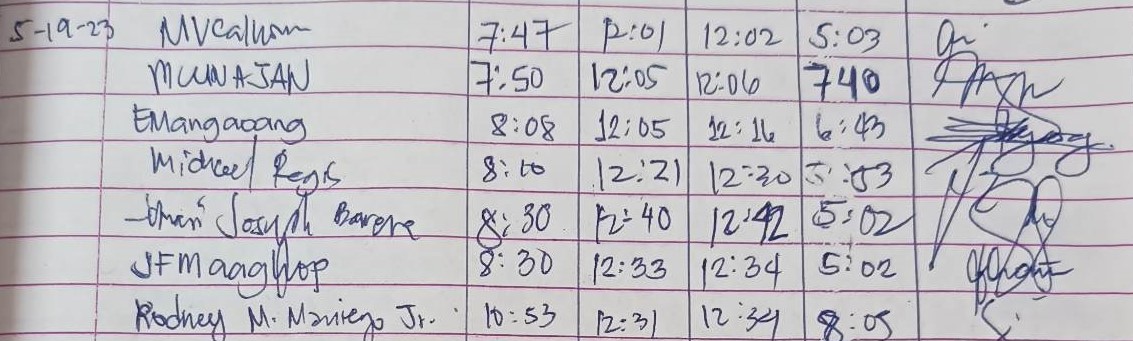 5-19-23 MVCalhom 7:47 12:01 12:02 5:03
MUNAJAN 7:50 12:05 12:06 740
EMangaoang 8:08 12:05 12:16 6:43
Michael Regis 8:10 12:21 12:30 5:53
Joseph Barere 8:30 12:40 12:42 5:02
JFMaaghop 8:30 12:33 12:34 5:02
Rodney M. Maniego Jr. 10:53 12:31 12:34 8:05